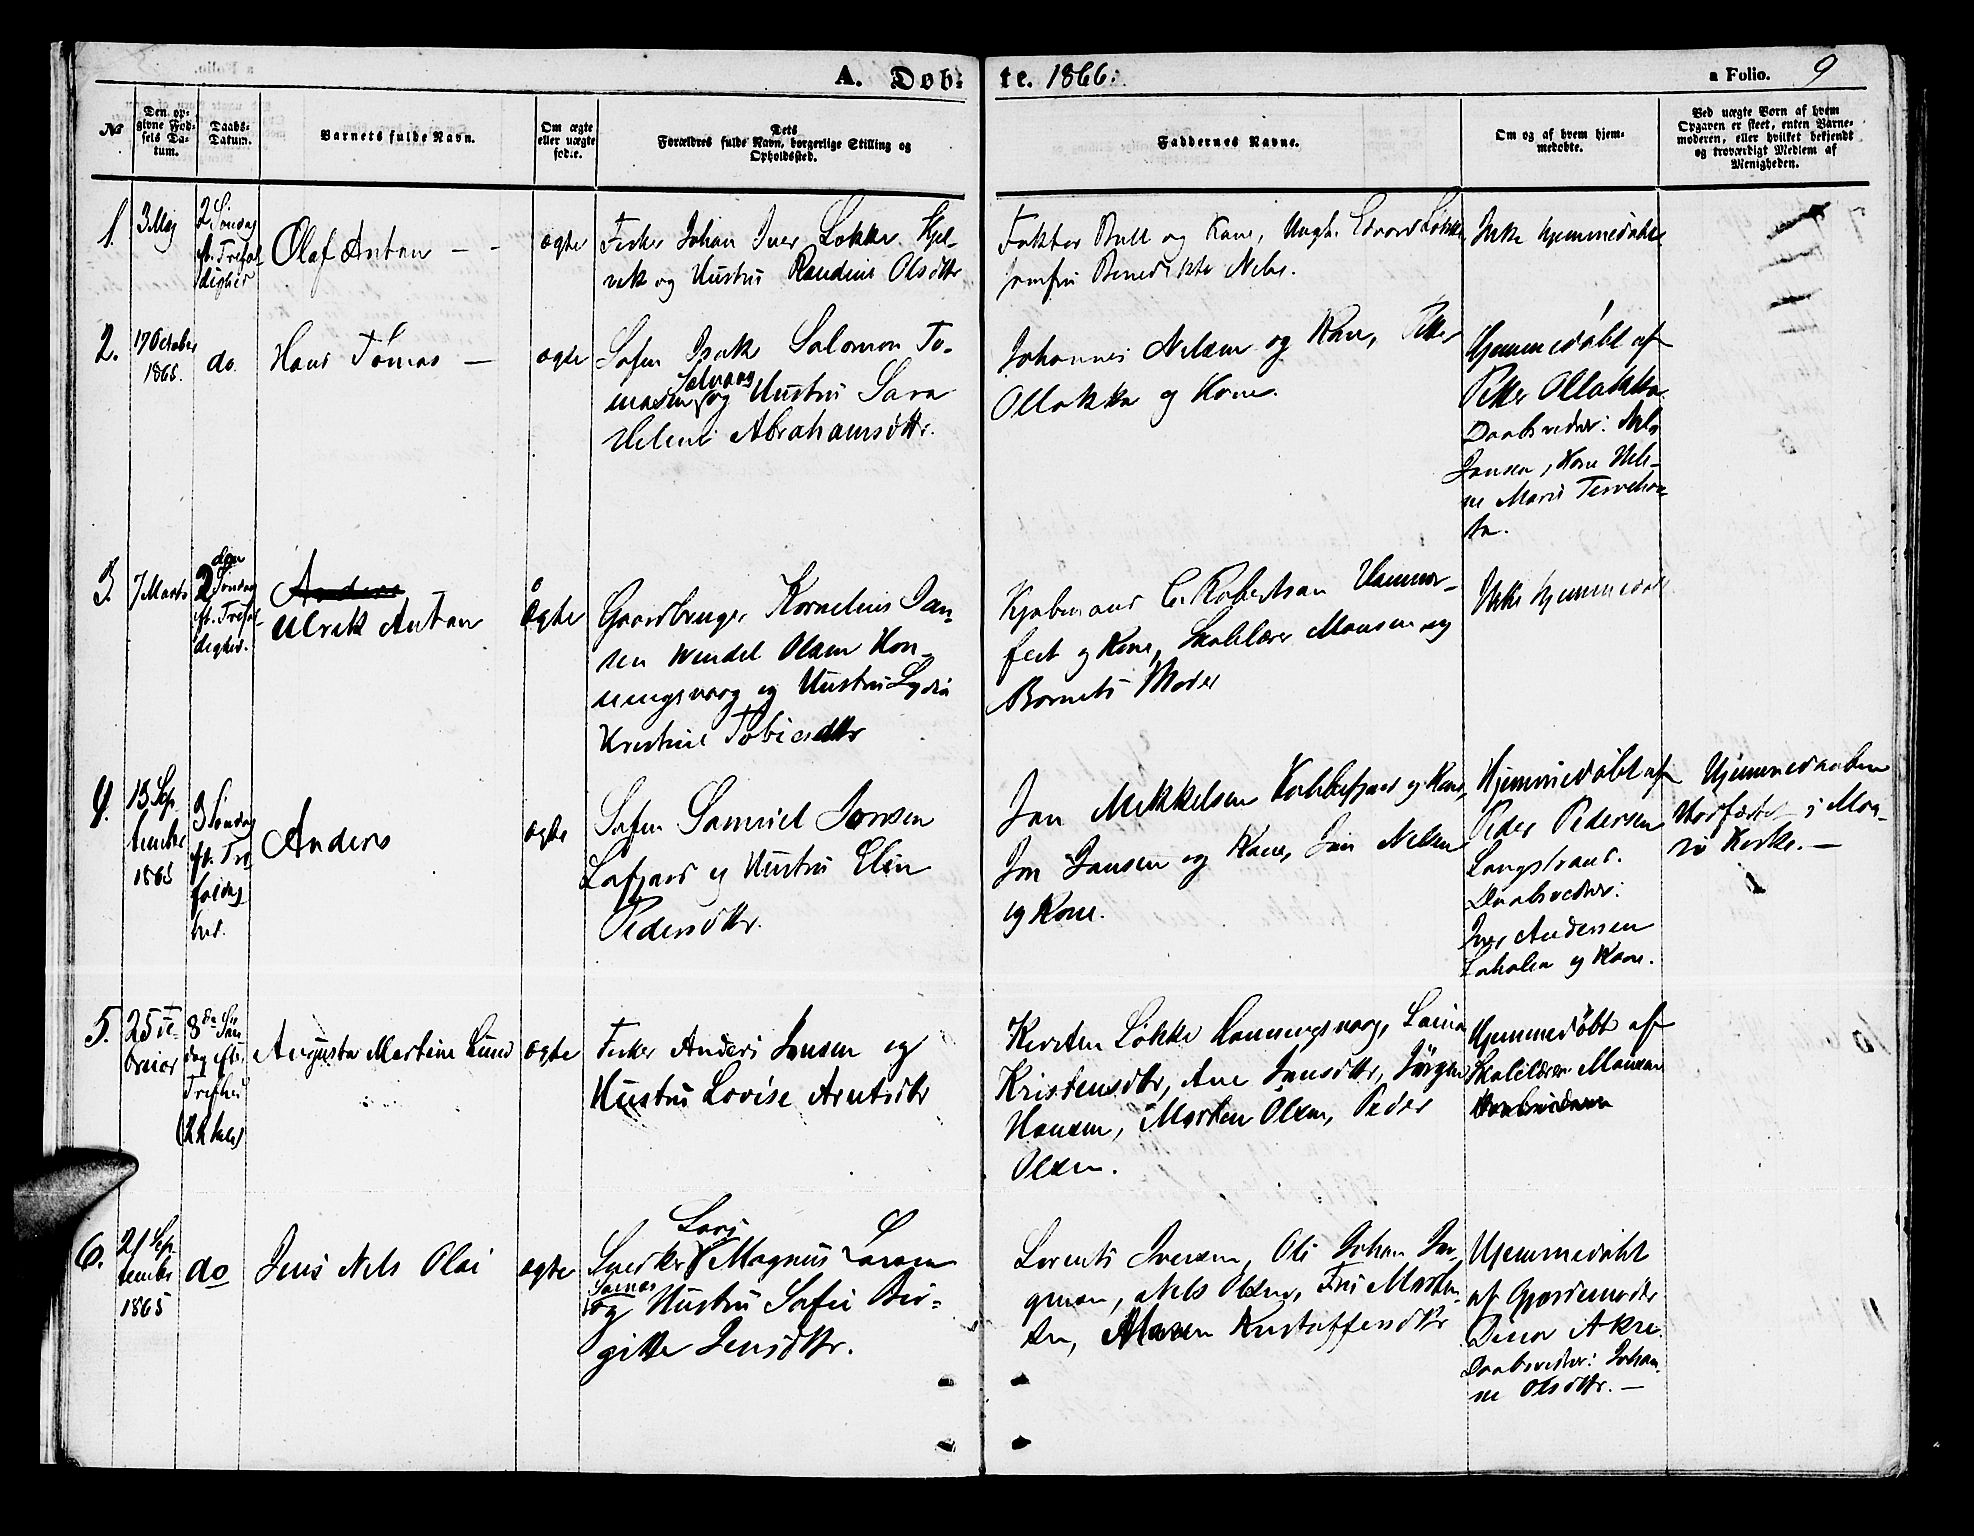 A. Døbte. 1866. a Folio. 9
№
Den opgivne Fødsels Datum.
Daabs-Datum.
Barnets fulde Navn.
Om ægte eller uægte fødte.
Dets Forældres fulde Navn, borgerlige Stilling og Opholdssted.
Faddernes Navne.
Om og af hvem hjemmedøbte.
Ved uægte Born af hvem Opgaven er skeet, enten Barnemoderen, eller hvilket bekjendt og troværdigt Medlem af Menigheden.
1.
3 Maj
2 Søndag
ft. Trefol-
dighed
Olaf Anton
ægte
Fisker Johan Iver Løkke Kjel-
vik og Hustru Randine Olsdttr
Faktor Bull og Kone, Ungk. Edvard Løkke
Jomfru Benedikte Nels.
Ikke hjemmedøbt
2.
17 October
1865.
do.
Hans Tomas
ægte
Søfin Isak Salomon To-
masen og Hustru Sara
Helene Abrahamsdttr.
Johannes Nelsen og Kone, Peter
Ollakka og Kone.
Hjemmedøbt af
Peter Ollakka
Daabsvidner: Nels
Jansen, Kone Hele-
ne Marie
3.
7 Marts
2den Søndag
ft. Trefol-
dighed.
Anders
Ulrik Anton
Ægte
Gaardbruger Kornelius Jan-
sen Wendel Olsen Hon-
ningsvaag og Hustru Lydia
Kristine Tobiasdttr
Kjøbmand C. Robertson Hammer-
fest og Kone, Skolelærer Monsen og
Barnets Moder
Ikke hjemmedøbt
4.
13 Sep-
tember
1865
3 Søndag
ft. Tre-
foldig-
hed.
Anders
ægte
Søfin Samuel Jonsen
Lafjord og Hustru Elen
Pedersdttr.
Jon Mikkelsen Kobbefjord og Kone,
Jon Jansen og Kone, Jon Nelsen
og Kone.
Hjemmedøbt af
Peder Pedersen
Langstrand.
Daabsvidner:
Iver Andersen
og Kone.
Hjemmedaaben
stadfæstet i Maa-
sø Kirke.
5.
25 Fe-
bruar
8de Søn-
dag efter
Trefhed
(22 Juli)
Augusta Martine Lund
ægte
Fisker Anders Jonsen og
Hustru Lovise Arntsdtr
Kirsten Løkke Honningsvaag, Laura
Kristensdttr, Ane Jansdttr, Jørgen
Hansen, Morten Olsen, Peder
Olsen.
Hjemmedøbt af
Skolelærer Monsen
6.
21 Sep-
tember
1865
do
Jens Nels Olai
ægte
Snedker Lars Magnus Larsen
Sarnes
og Hustru Sofie Bir-
gitte Jensdttr.
Lorents Iversen, Ole Johan Jør-
gensen, Nels Olsen, Kristoffersdttr
Hjemmedøbt
af Gjordemoder
Akre.
Daabsvidner: Johan-
ne Olsdttr.